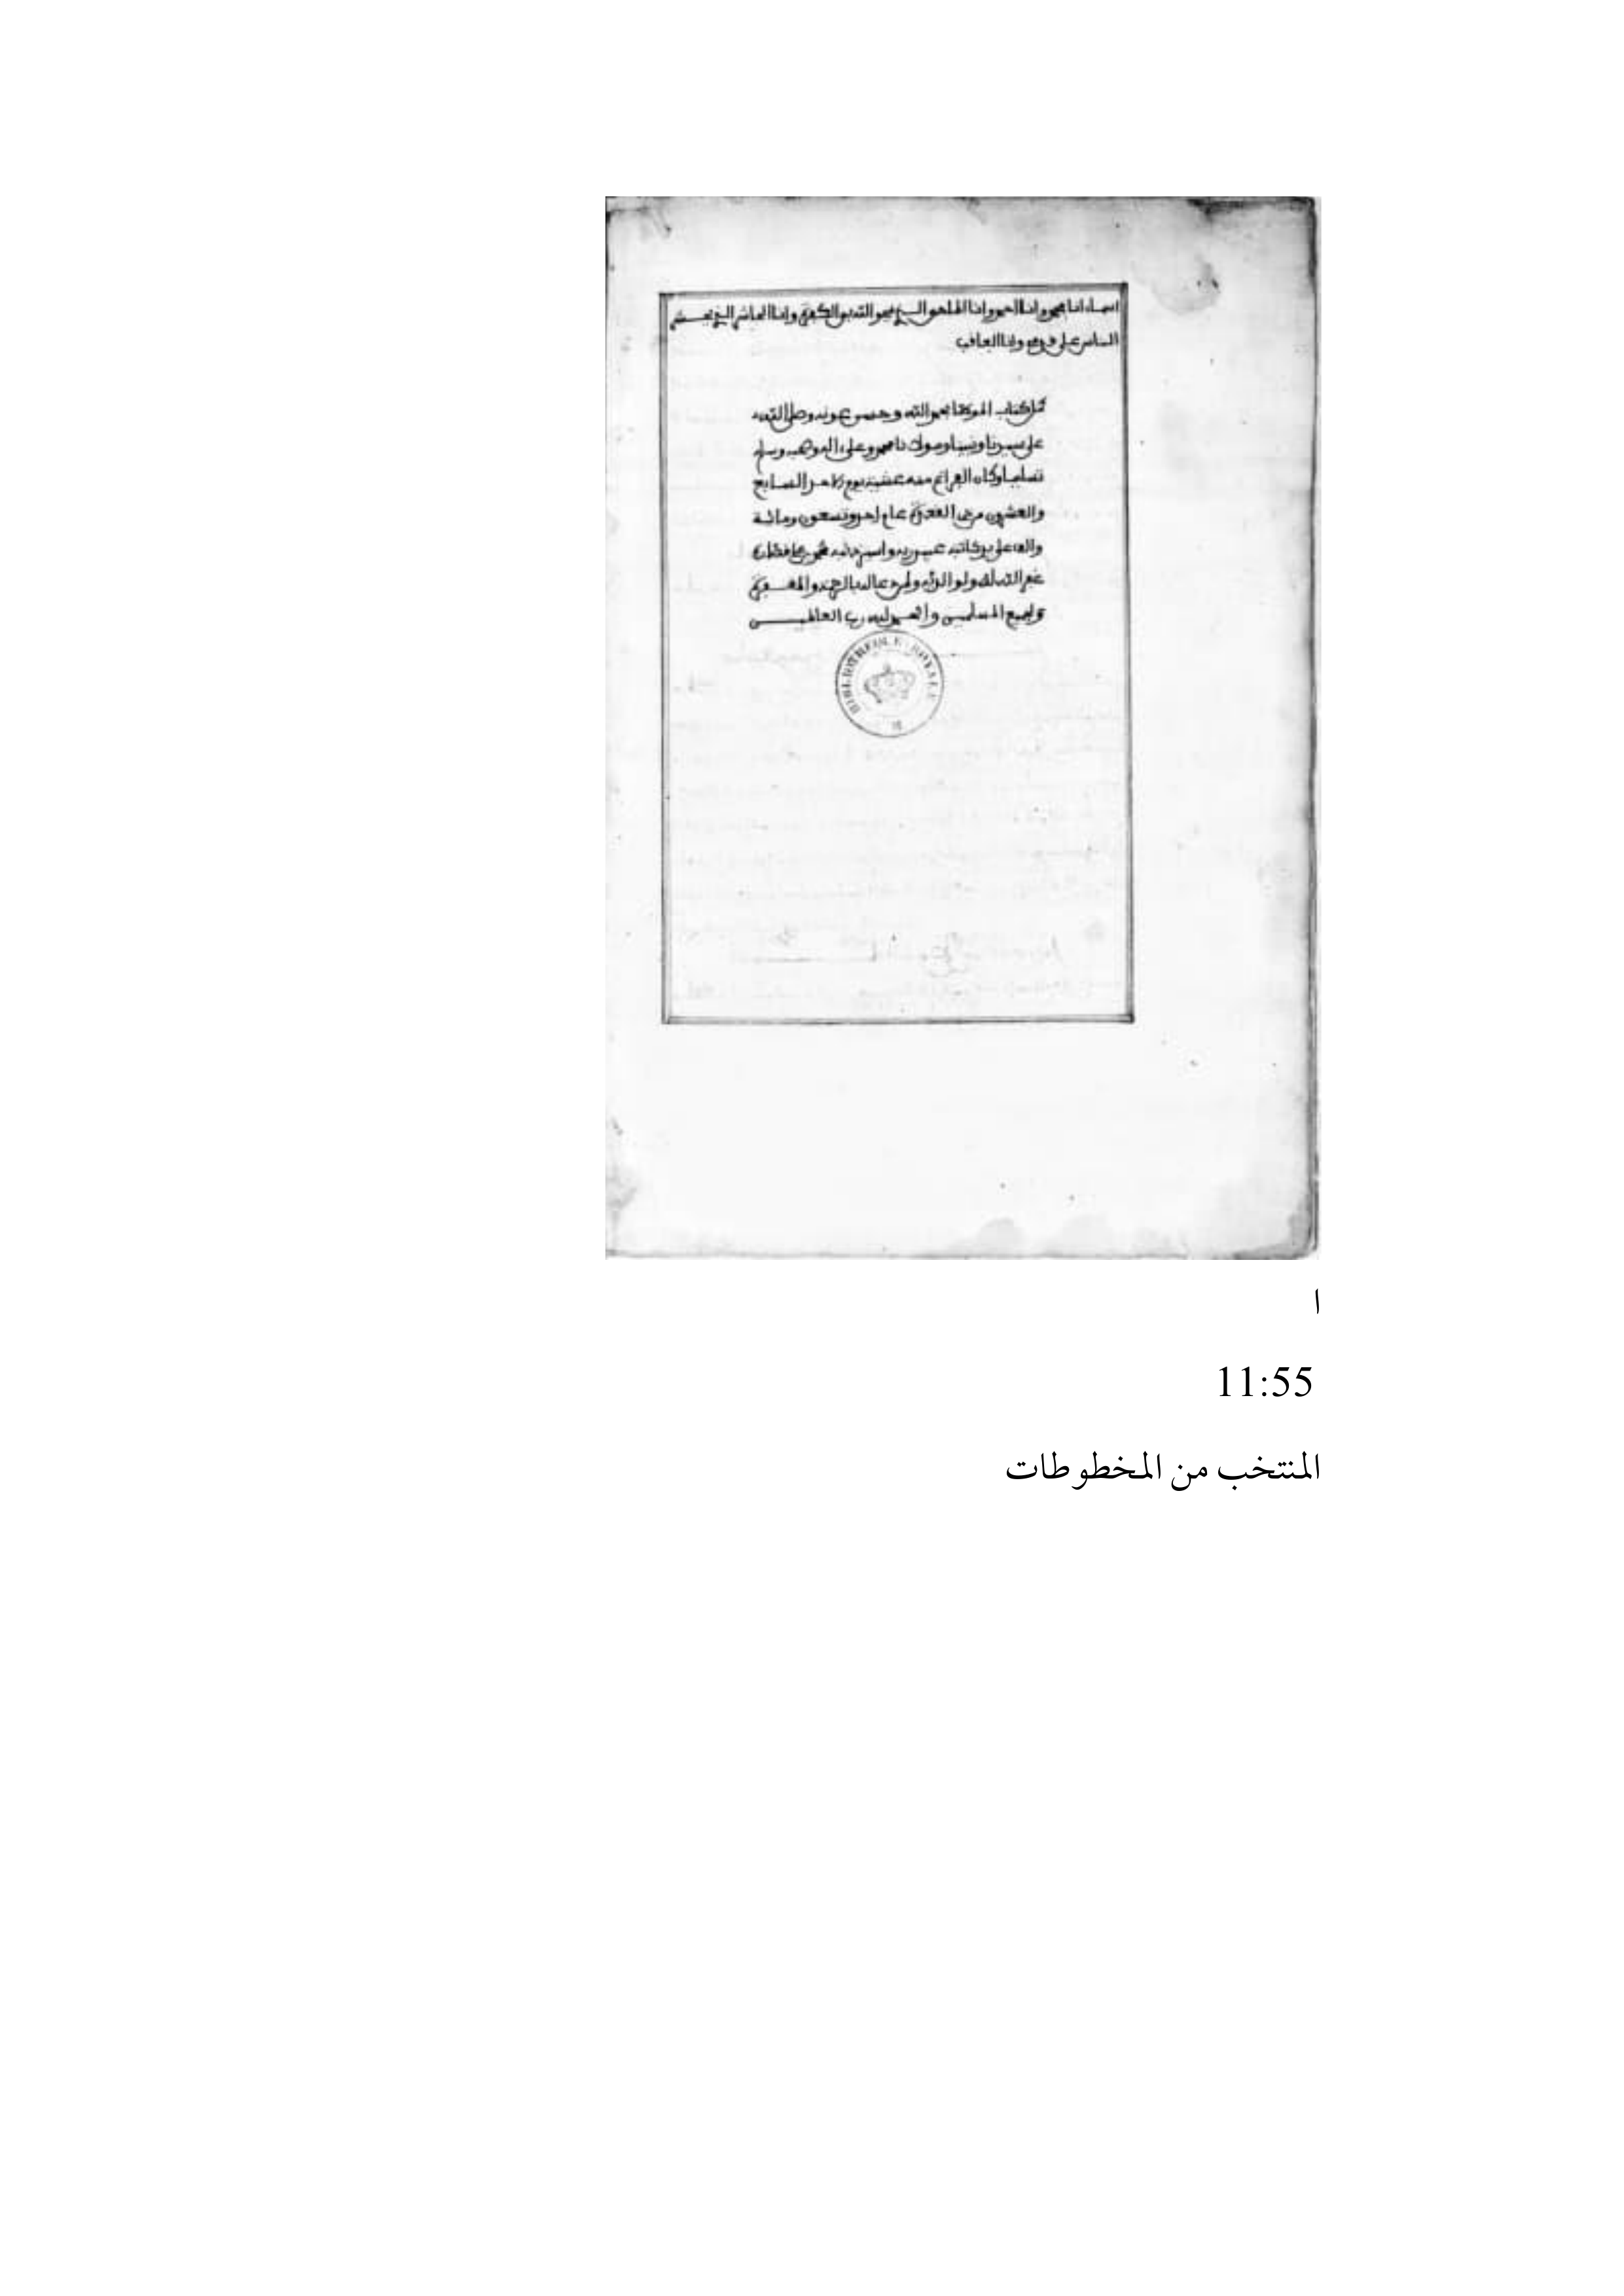 اسماء انا محمد وانا احمد وانا الماحي الذي يمحو الله بي الكفر وانا الحاشر الذي يحشر
الناس على قدمي وانا العاقب
تم كتاب الموطا بحمد الله وحسن عونه وصلى الله
على سيدنا ونبينا ومولانا محمد وعلى اله وصحبه وسلم
تسليما وكان الفراغ منه عشية يوم الاحد السابع
والعشرين من ذي القعدة عام احد وتسعون ومائة
والف على يد كاتبه عبد ربه واسير ذنبه محمد بن
غفر الله له ولوالديه ولمن دعا لهما بالرحمة والمغفرة
ولجميع المسلمين والحمد لله رب العالمين
BIBLIOTHEQUE ROYALE
ا
11:55
المنتخب من المخطوطات